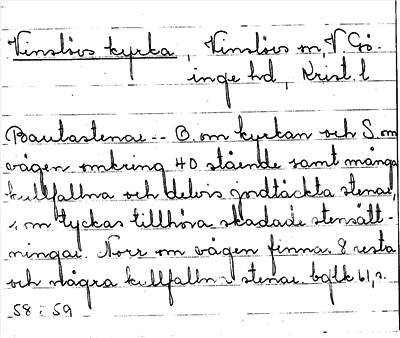 Vinslövs kyrka, Vinslövs sn, V. Gö.
inge hd, Krist. l
Bautastenar -- O. om kyrkan och S. om
vägen omkring 40 stående samt många
kullfallna och delvis jordtäckta stenar,
som tyckas tillhöra skadade stensätt-
ningar. Norr om vägen finna. 8 resta
och några kullfallna stenar. bqlk 61, 2.
58 : 59